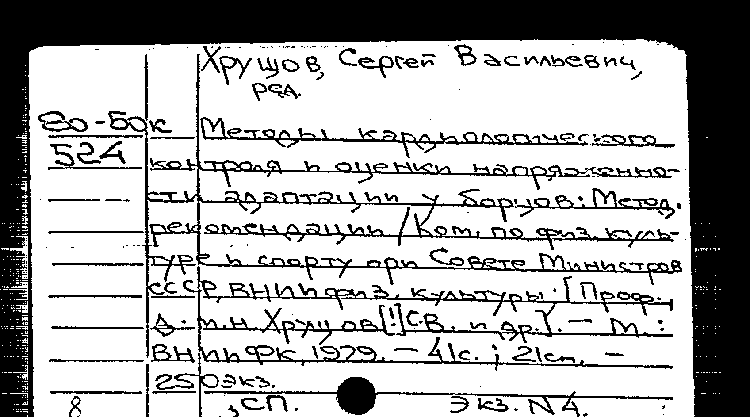 Хрущов, Сергей Васильевич,
ред.
80-50к Методы кардиологического
524 контроля и оценки напряженно-
сти адаптации у борцов: Метод.
рекомендации / Ком. по физ. куль-
туре и спорту при Совете Министров
СССР, ВНИИ физ. культуры. [Проф.,
д. м. н. Хрущов [!] С.В. и др.]. — М.:
ВНИИФК, 1979. — 41с.; 21см. —
250экз.
8 , СП. Экз. N 4.